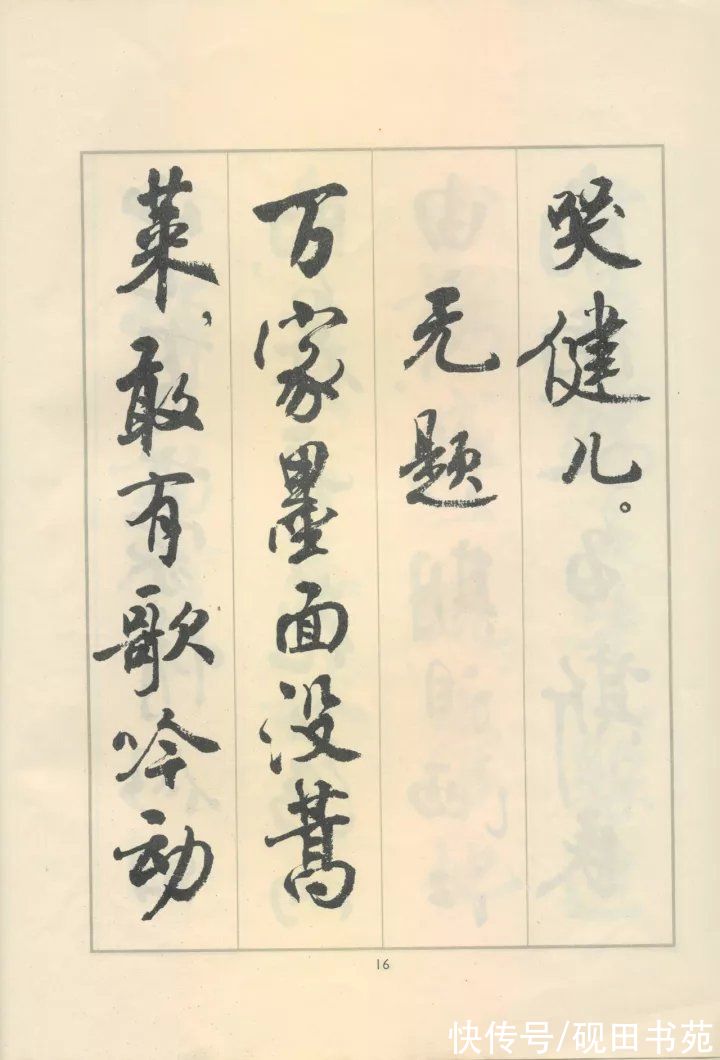 哭健儿。
无题
万家墨面没蒿
莱，敢有歌吟动
16
快传号/砚田书苑